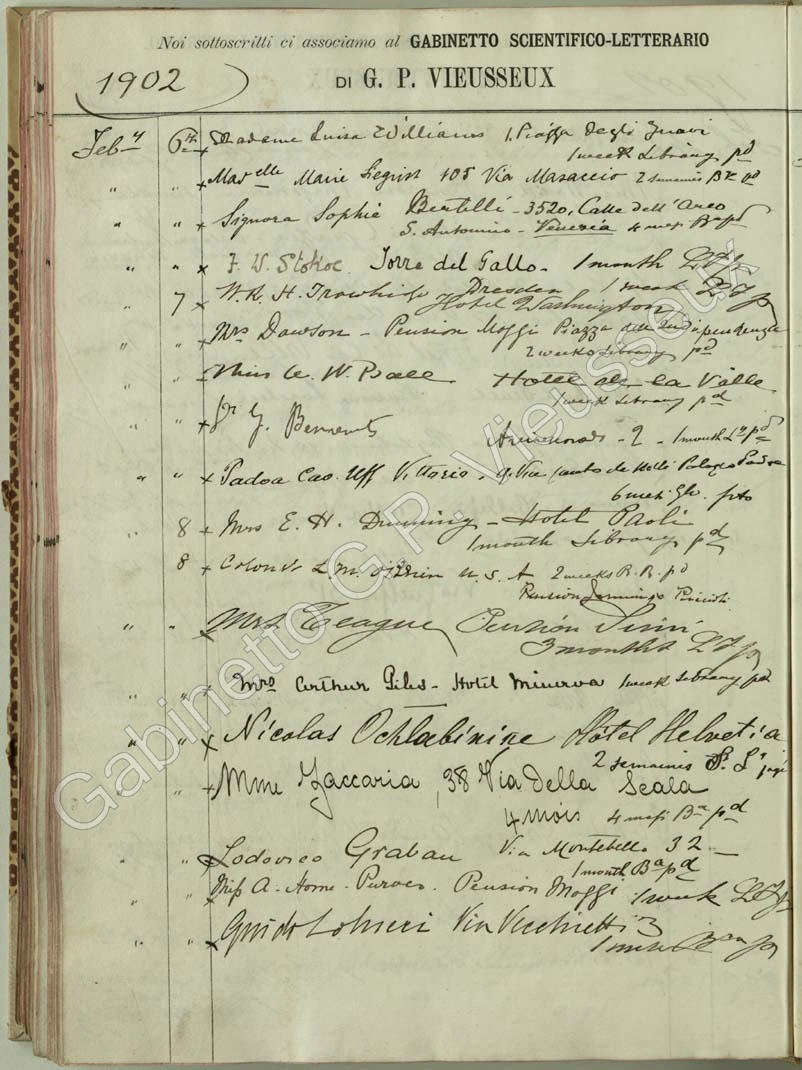 Noi sottoscritti ci associamo al GABINETTO SCIENTIFICO-LETTERARIO
1902
DI G. P. VIEUSSEUX
Feb.y 6th x Madame Luisa Williams 1. Piazza degli Zuavi
1 week Library pd
" " x Mad.elle Marie Segrist 105 Via Masaccio 2 semaines pd
" " x Signora Sophie Bertelli - 3520, Calle dell'Arco
S. Antonino - Venezia 4 mesi pd
" " x F. W. Stokoe Torre del Gallo. 1 month
7 x W. R. H. Trowbridge Dresden 1 week
Hotel Washington
" " x Mrs Dawson - Pension Moggi Piazza dell' Independenza
2 weeks Library pd
" " x Miss W. Hotel de la Ville
1 week Library pd
" " x - 2 - 1 month pd
" " x Padoa Cav. Uff Vittorio.
6 mesi
8 x Mrs E. H. Dunning - Hotel Paoli
1 month Library pd
8 x L. M. O'Brien U. S. A 2 weeks pd
Pension
" " x Mrs Teague Pension Simi
3 months
" " x Mrs Arthur Giles - Hotel Minerva 1 week Library pd
" " x Nicolas Ochlabinine Hôtel Helvetia
2 semaines
" " x Mme Zaccaria, 38 Via della Scala
4 mois 4 mesi pd
" " x Lodovico Grabau Via Montebello 32 -
1 month Ba pd
" " x Miss A. Home-Purves. Pension Moggi 1 week
" " x Guido Via Vecchietti 3
1 mese
Gabinetto G.P. Vieusseux